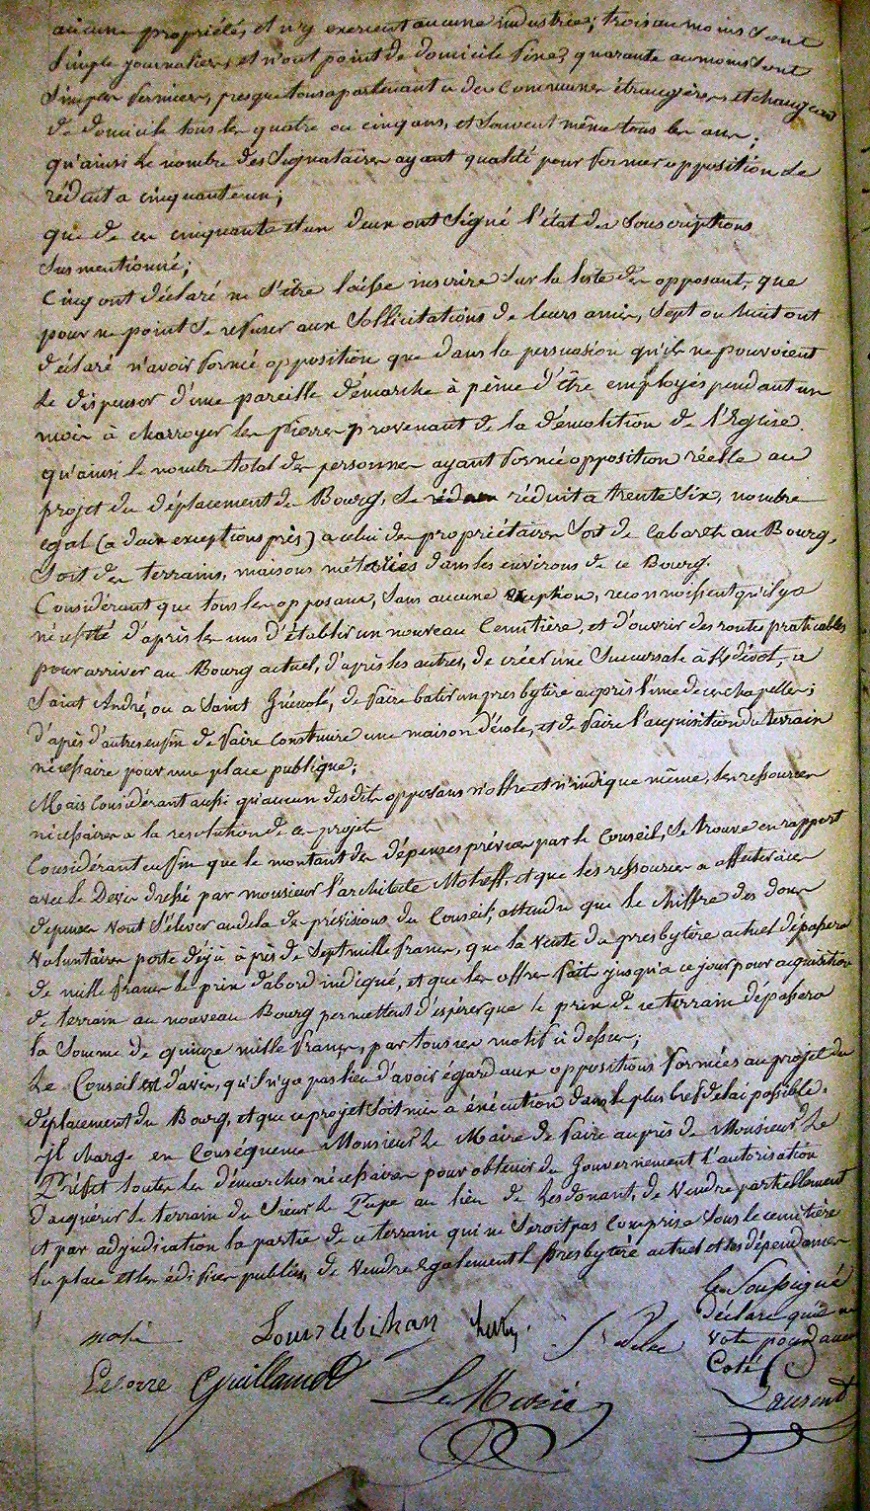 aucune propriétés et n'y exercent aucune industrie; trois au moins sont
simple journaliers et n'ont point de domicile fixe, quarante au moins sont
simples fermiers, presque tous apartenant a des Communes étrangères et changeant
de domicile tous les quatre ou cinq ans, et souvent même tous les ans;
qu'ainsi le nombre des signataires ayant qualité pour former opposition se
réduit a cinquante un;
que de ces cinquante et un deux ont signé l'état des souscriptions
susmentionné;
Cinq ont déclaré ne s'être laissé inscrire sur la liste des opposants, que
pour ne point se refuser aux sollicitations de leurs amis, sept ou huit ont
déclaré n'avoir formé opposition que dans la persuasion qu'ils ne pouvoient
se dispenser d'une pareille démarche à péine d'être employés pendant un
mois à charroyer les pierres provenant de la démolition de l'Eglise.
qu'ainsi le nombre total des personnes ayant formé opposition réelle au
projet du déplacement du Bourg, se réduit a trente six, nombre
egal (a deux exceptions près) a celui des propriétaires soit de Cabarets au Bourg,
soit des terrains, maisons métairies dans les environs de ce Bourg.
Considérant que tous les opposans, sans aucune exception, reconnoissent qu'il y a
nécessité d'après les uns d'établir un nouveau Cemitière, et d'ouvrir des routes praticables
pour arriver au Bourg actuel, d'après les autres, de créer une Succursale à Kdévot, a
Saint André, ou a Saint Guénolé, de faire batir un presbytère auprès l'une de ces chapelles;
d'après d'autres enfin de faire construire une maison d'école, et de faire l'acquisition du terrain
nécessaire pour une place publique;
Mais Considérant aussi qu'aucun desdits opposans n'offre et n'indique même, les ressources
nécessaires a la resolution de ce projet
Considérant enfin que le montant des dépenses prévues par le Conseil, se trouve en rapport
avec le Devis dressé par monsieur l'architecte Motreff, et que les ressources a affecter à ces
dépenses vont s'élever audela des prévisions du Conseil, attendu que le chiffre des dons
volontaires porte déjà à près de Sept mille francs, que la vente du presbytère actuel dépassera
de mille francs le prix d'abord indiqué, et que les offres faites jusqu'a ce jour pour acquisition
de terrain au nouveau Bourg permettent d'espérer que le prix de ce terrain dépassera
la somme de quinze mille francs, par tous ces motifs ci dessus;
Le Conseil est d'avis, qu'il n'y a pas lieu d'avoir égard aux oppositions formées au projet du
déplacement du Bourg, et que ce projet soit mis a éxécution dans le plus bref delai possible.
Il charge en Conséquence Monsieur Le Maire de faire auprès de Monsieur Le
Préfet toutes les démarches nécessaires pour obtenir du Gouvernement l'autorisation
d'acquérir le terrain du Sieur Le Pape au lieu de Lesdonant, de vendre partiellement
et par adjudication la partie de ce terrain qui ne seroit pas comprise sous le cemitière
la place et les édifices publics, de vendre également le presbytère actuel et ses dépendances
Le Soussigné
déclare qu'il ne
vote pour aucun
Coté
Louis lebihan
Guillamot
Laurent